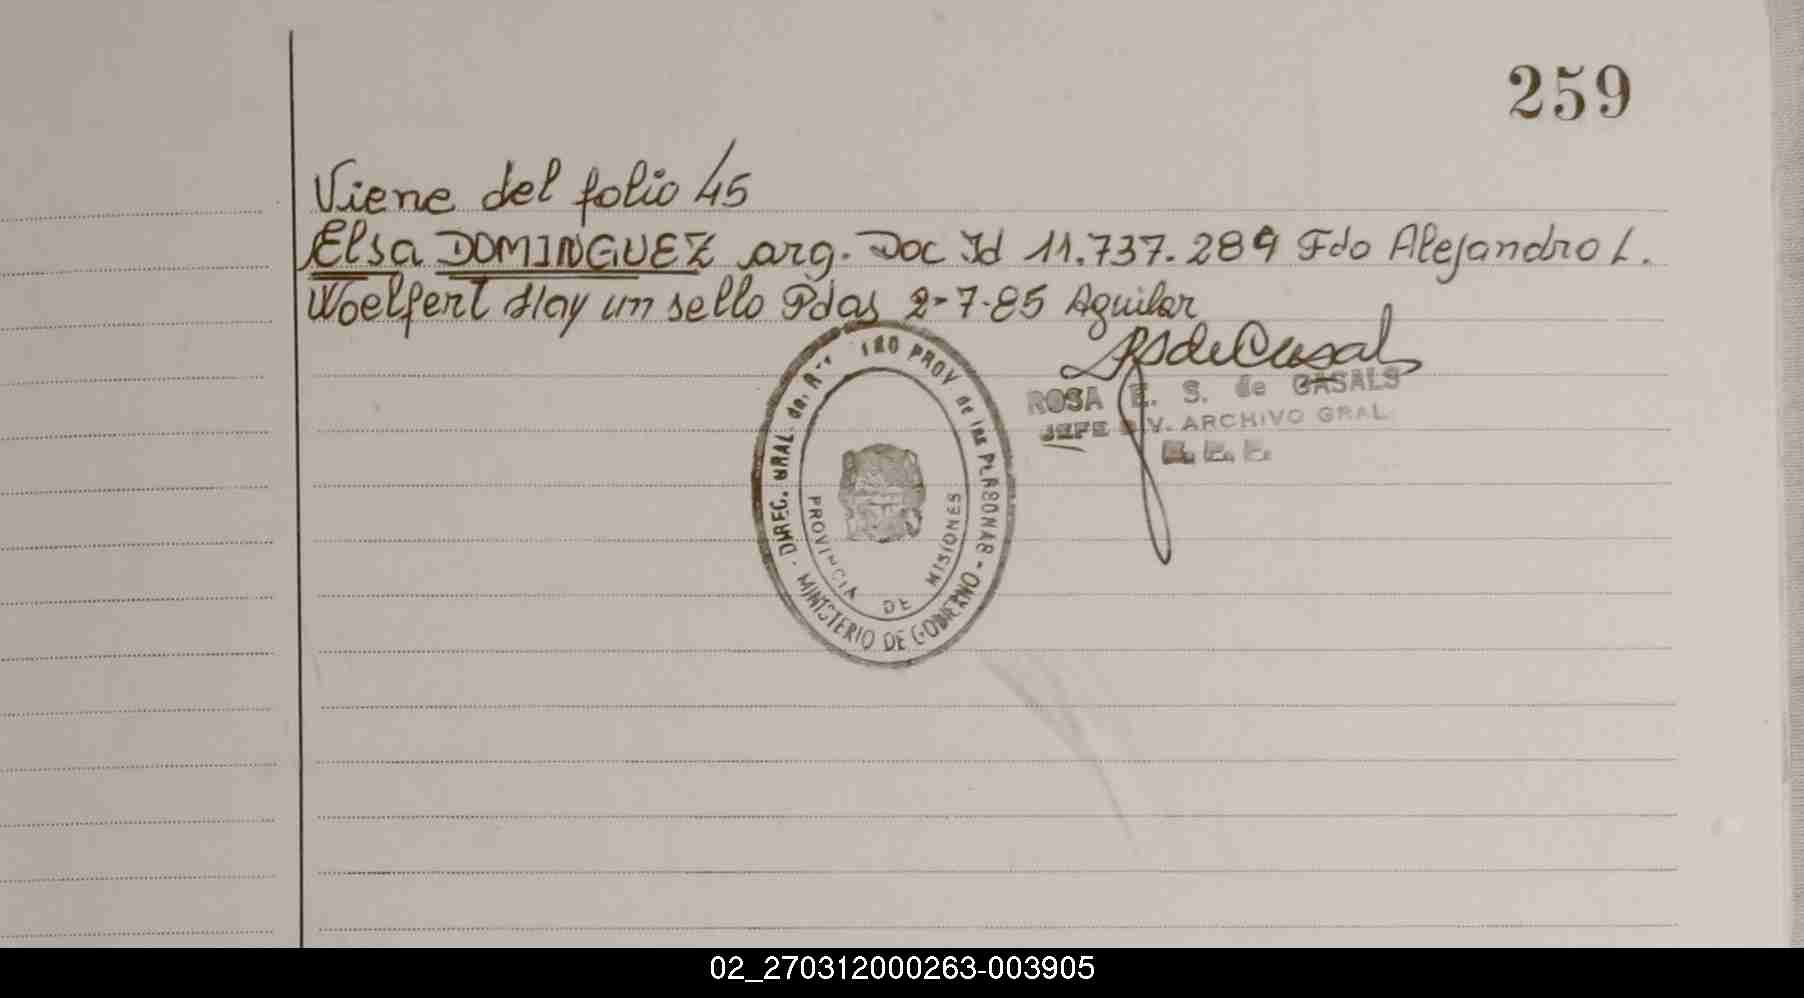 259
Viene del folio 45
Elsa DOMINGUEZ arg. Doc Id 11.737.289 Fdo Alejandro L.
Woelfert Hay un sello Pdas 2-7-85 Aguilar
RSdeCasals
ROSA E. S. de CASALS
JEFE DIV. ARCHIVO GRAL.
DIREC. GRAL. del PROV de las PERSONAS - MINISTERIO DE GOBIERNO -
PROVINCIA DE MISIONES
02_270312000263-003905